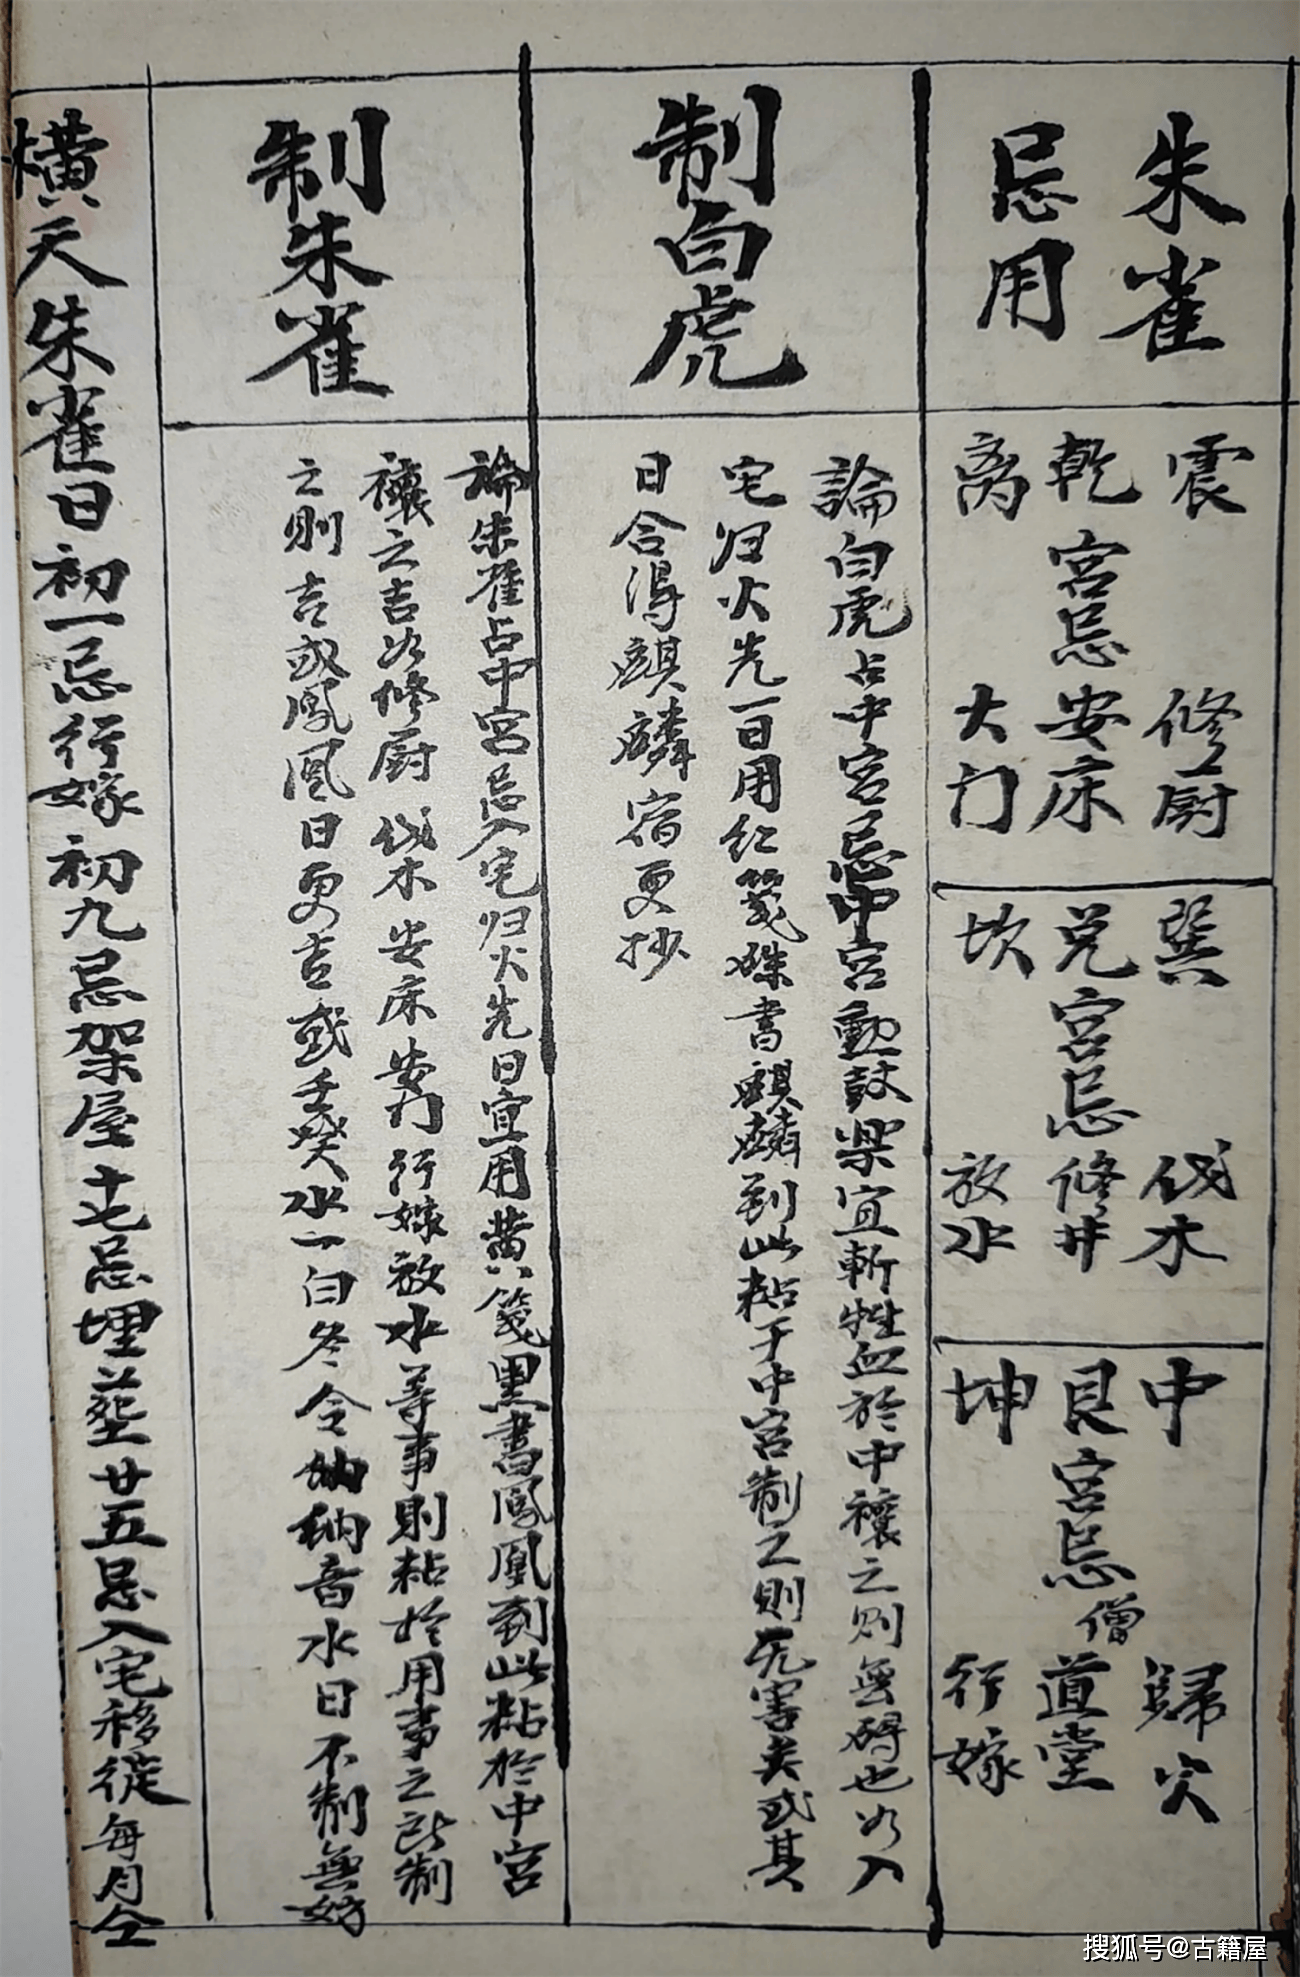 朱雀
忌用
震　修厨
乾宮忌安床
离　大门
巽　伐木
兑宮忌修井
坎　放水
中　歸火
艮宮忌僧道堂
坤　行嫁
制白虎
論白虎占中宮忌中宮動鼓楽宜斬牲血於中禳之则無碍也如入
宅归火先一日用红箋硃書麒麟到此粘于中宮制之則无害矣或其
日合得麒麟宿更抄
制朱雀
論朱雀占中宮忌入宅归火先日宜用黄箋黑書鳳凰到此粘於中宮
禳之吉如修厨伐木安床安门行嫁放水等事則粘於用事之所制
之則吉或鳳凰日更吉或壬癸水一白冬令纳纳音水日不制無妨
横天朱雀日初一忌行嫁初九忌架屋十七忌埋葬廿五忌入宅移徙每月仝
搜狐号@古籍屋